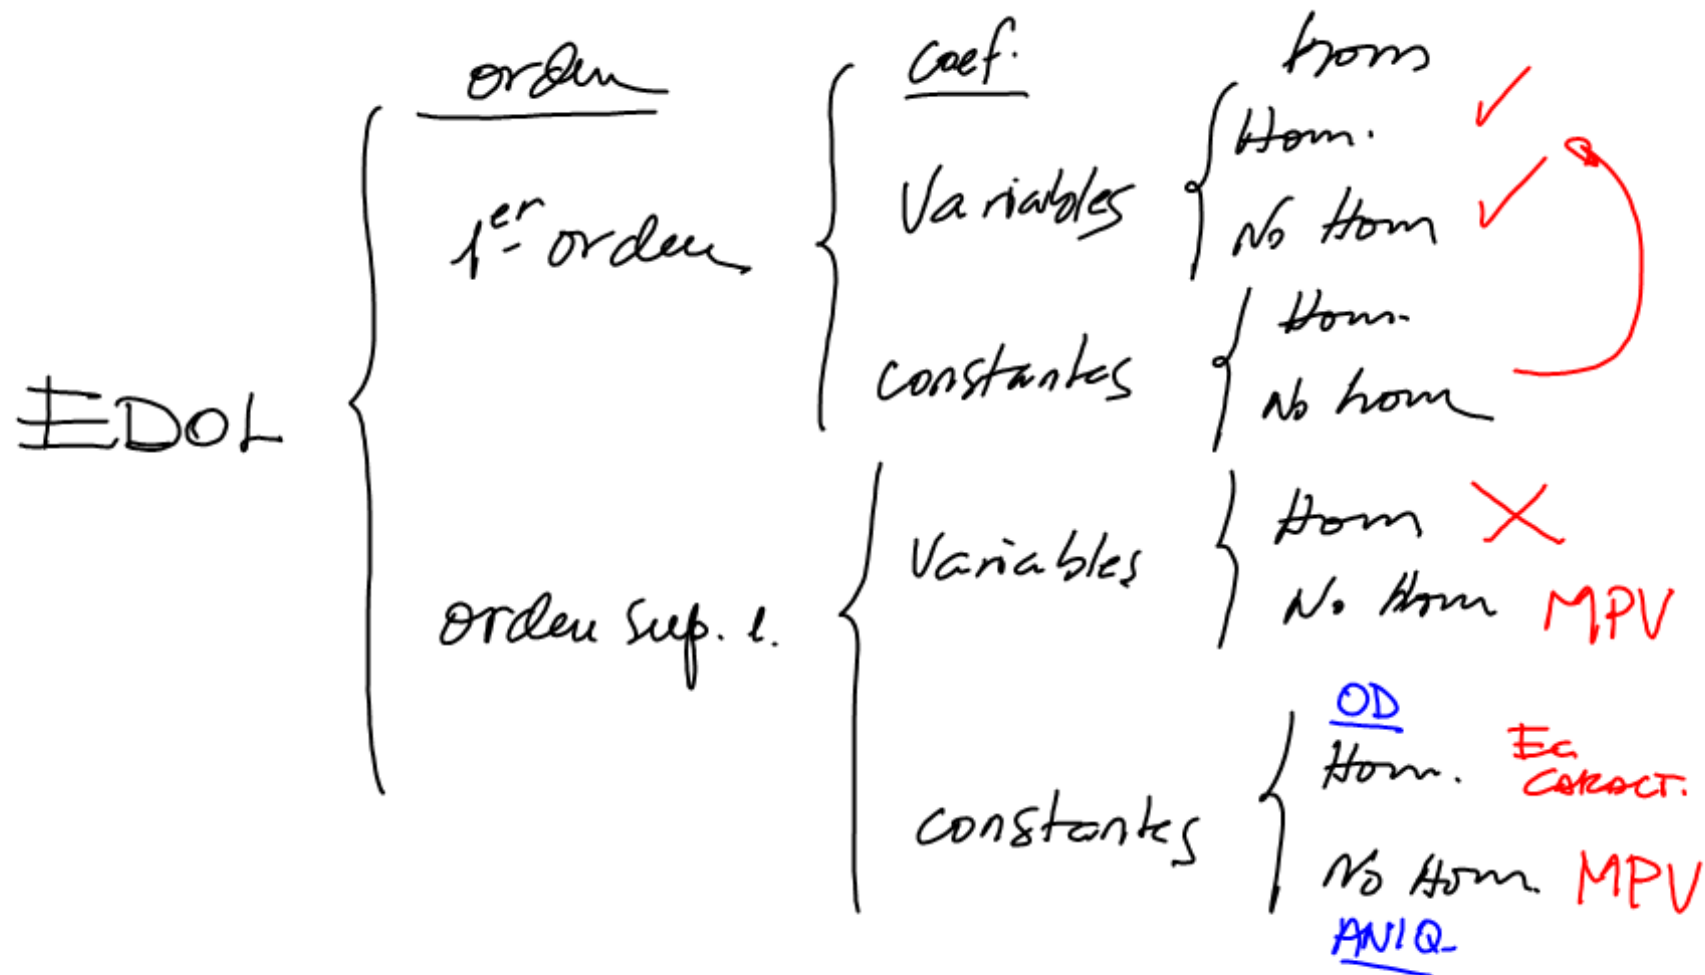 orden coef. hom
1er orden Variables Hom.
No Hom
constantes Hom.
No hom
EDOL
orden sup. 1. Variables Hom
No Hom MPV
constantes OD
Hom. Ec CARACT.
No Hom. MPV
ANIQ